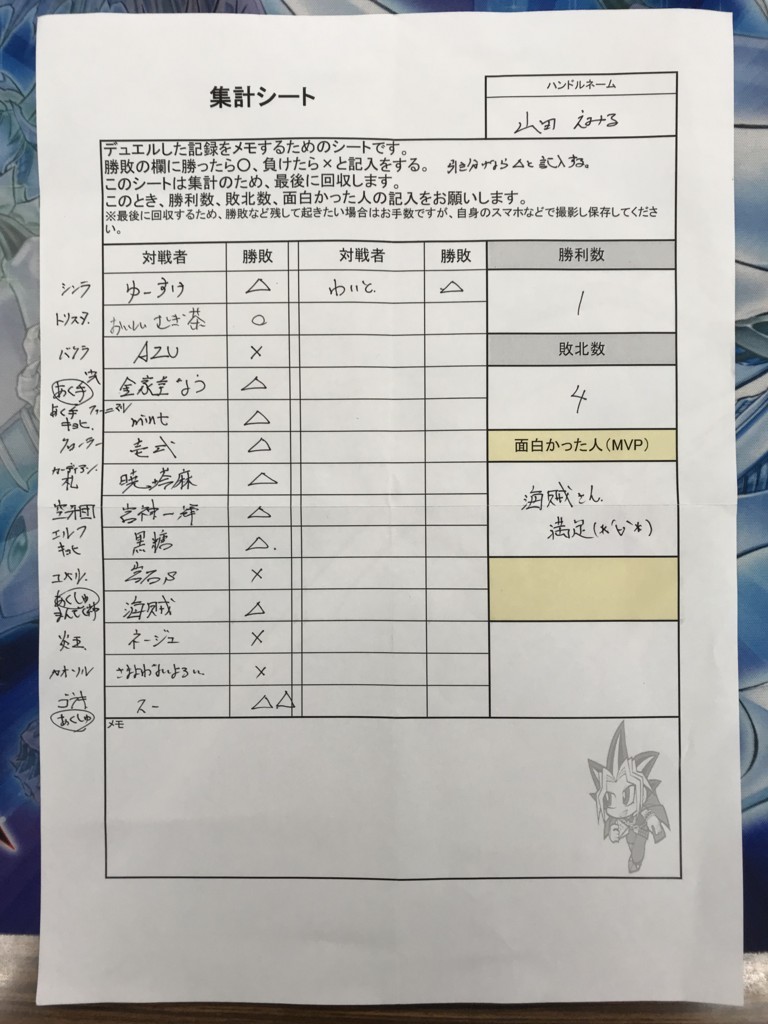 集計シート
ハンドルネーム
山田 えみる
デュエルした記録をメモするためのシートです。
勝敗の欄に勝ったら〇、負けたら×と記入をする。 引き分けなら△と記入する。
このシートは集計のため、最後に回収します。
このとき、勝利数、敗北数、面白かった人の記入をお願いします。
※最後に回収するため、勝敗など残して起きたい場合はお手数ですが、自身のスマホなどで撮影し保存してくださ
い。
対戦者 勝敗 対戦者 勝敗 勝利数
シンラ ゆーすけ △ わいと △
1
トリスタ おいしいむぎ茶 〇
バクラ AZU × 敗北数
あく手 金家堂なう △
4
あく手 キョヒ mint △
クローラー 壱式 △ 面白かった人(MVP)
札 暁 塔麻 △
海賊さん
満足
空牙団 宮神一輝 △
エルフ キョヒ 黒糖 △
岩石β ×
あくしゅ 海賊 △
炎王 ネージュ ×
カオソル さまよわないよろい ×
あくしゅ スー △△
メモ